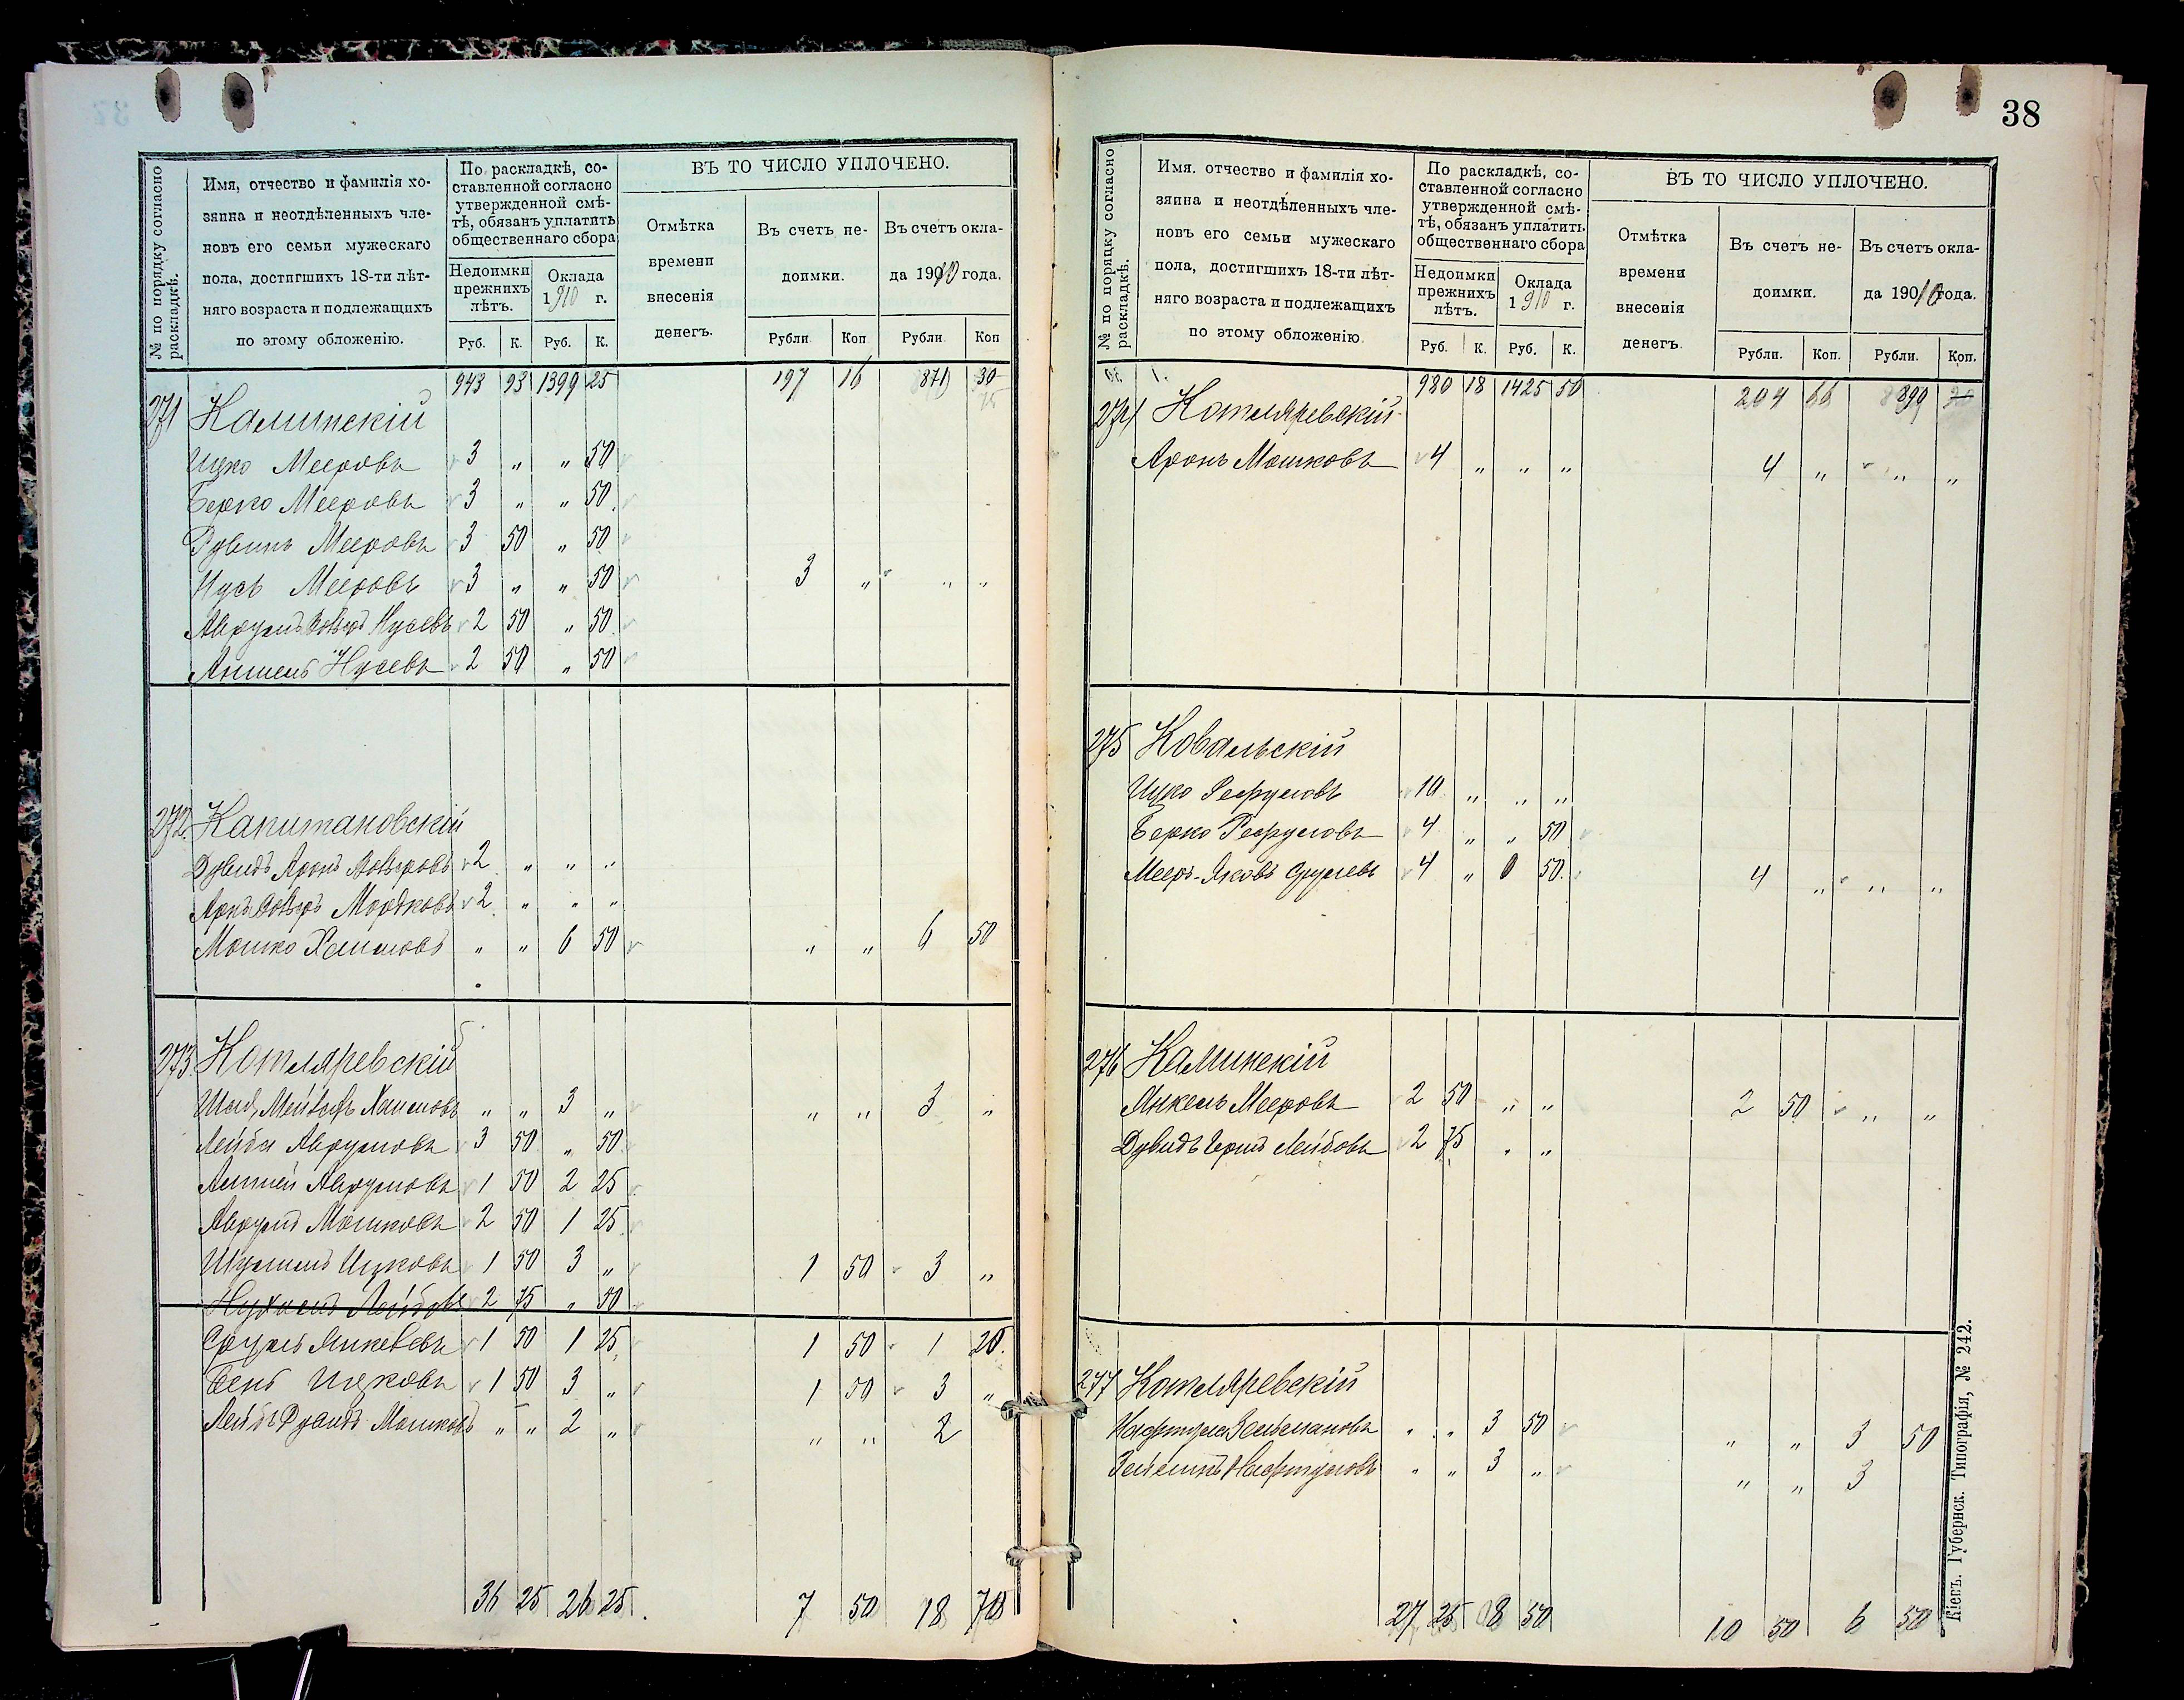 № по порядку согласно
раскладкѣ.
Имя, отчество и фамилія хо-
зяина и неотдѣленныхъ чле-
новъ его семьи мужескаго
пола, достигшихъ 18-ти лѣт-
няго возраста и подлежащихъ
по этому обложенію.
По раскладкѣ, со-
ставленной согласно
утвержденной смѣ-
тѣ, обязанъ уплатить
общественнаго сбора
Недоимки
прежнихъ
лѣтъ.
Оклада
1910 г.
Руб. К. Руб. К.
ВЪ ТО ЧИСЛО УПЛОЧЕНО.
Отмѣтка
времени
внесенія
денегъ.
Въ счетъ не-
доимки.
Въ счетъ окла-
да 1910 года.
Рубли Коп Рубли Коп
943 93 1399 25 197 16 871 30
271 Калинскій
Ицко Мееровъ 3 " " 50
Берко Мееровъ 3 " " 50
Рувинъ Мееровъ 3 50 " 50
Нусь Мееровъ 3 " " 50 3 " " "
Аврумъ Нусевъ 2 50 " 50
Аншель Нусевъ 2 50 " 50
272 Капитановскій
Дувидъ Аронъ 2 " " "
Мордковъ 2 " " "
Мошко Хаимовъ " " 6 50 " " 6 50
273 Котляревскій
Хаимовъ " " 3 " " " 3 "
Лейба Аврумовъ 3 50 " 50
Аврумовъ 1 50 2 25
Аврумъ Мошковъ 2 50 1 25
Ицковъ 1 50 3 " 1 50 3 "
Лейбовъ 2 75 " 50
Сруль Янкелевъ 1 50 1 25 1 50 1 20
Бень Ицковъ 1 50 3 " 1 50 3 "
Мошковъ " " 2 " " " 2
36 25 26 25 7 50 18 70
38
№ по порядку согласно
раскладкѣ.
Имя. отчество и фамилія хо-
зяина и неотдѣленныхъ чле-
новъ его семьи мужескаго
пола, достигшихъ 18-ти лѣт-
няго возраста и подлежащихъ
по этому обложенію
По раскладкѣ, со-
ставленной согласно
утвержденной смѣ-
тѣ, обязанъ уплатить
общественнаго сбора
Недоимки
прежнихъ
лѣтъ.
Оклада
1910 г.
Руб. К. Руб. К.
ВЪ ТО ЧИСЛО УПЛОЧЕНО.
Отмѣтка
времени
внесенія
денегъ.
Въ счетъ не-
доимки.
Въ счетъ окла-
да 1910 года.
Рубли. Коп. Рубли. Коп.
980 18 1425 50 204 66 890
274 Котляревскій
Аронъ Мошковъ 4 " " " 4 " " "
275 Ковальскій
Ицко 10 " " "
Берко 4 " " 50
Мееръ-Яковъ Срулевъ 4 " 0 50 4 " " "
276 Калинскій
Янкель Мееровъ 2 50 " " 2 50 " "
Дувидъ Герш Лейбовъ 2 75 " "
277 Котляревскій
Нафтула Зельмановъ " " 3 50 " " 3 50
Нафтуловъ " " 3 " " " 3
27 25 8 50 10 50 6 50
Кіевъ. Губернск. Типографія, № 242.